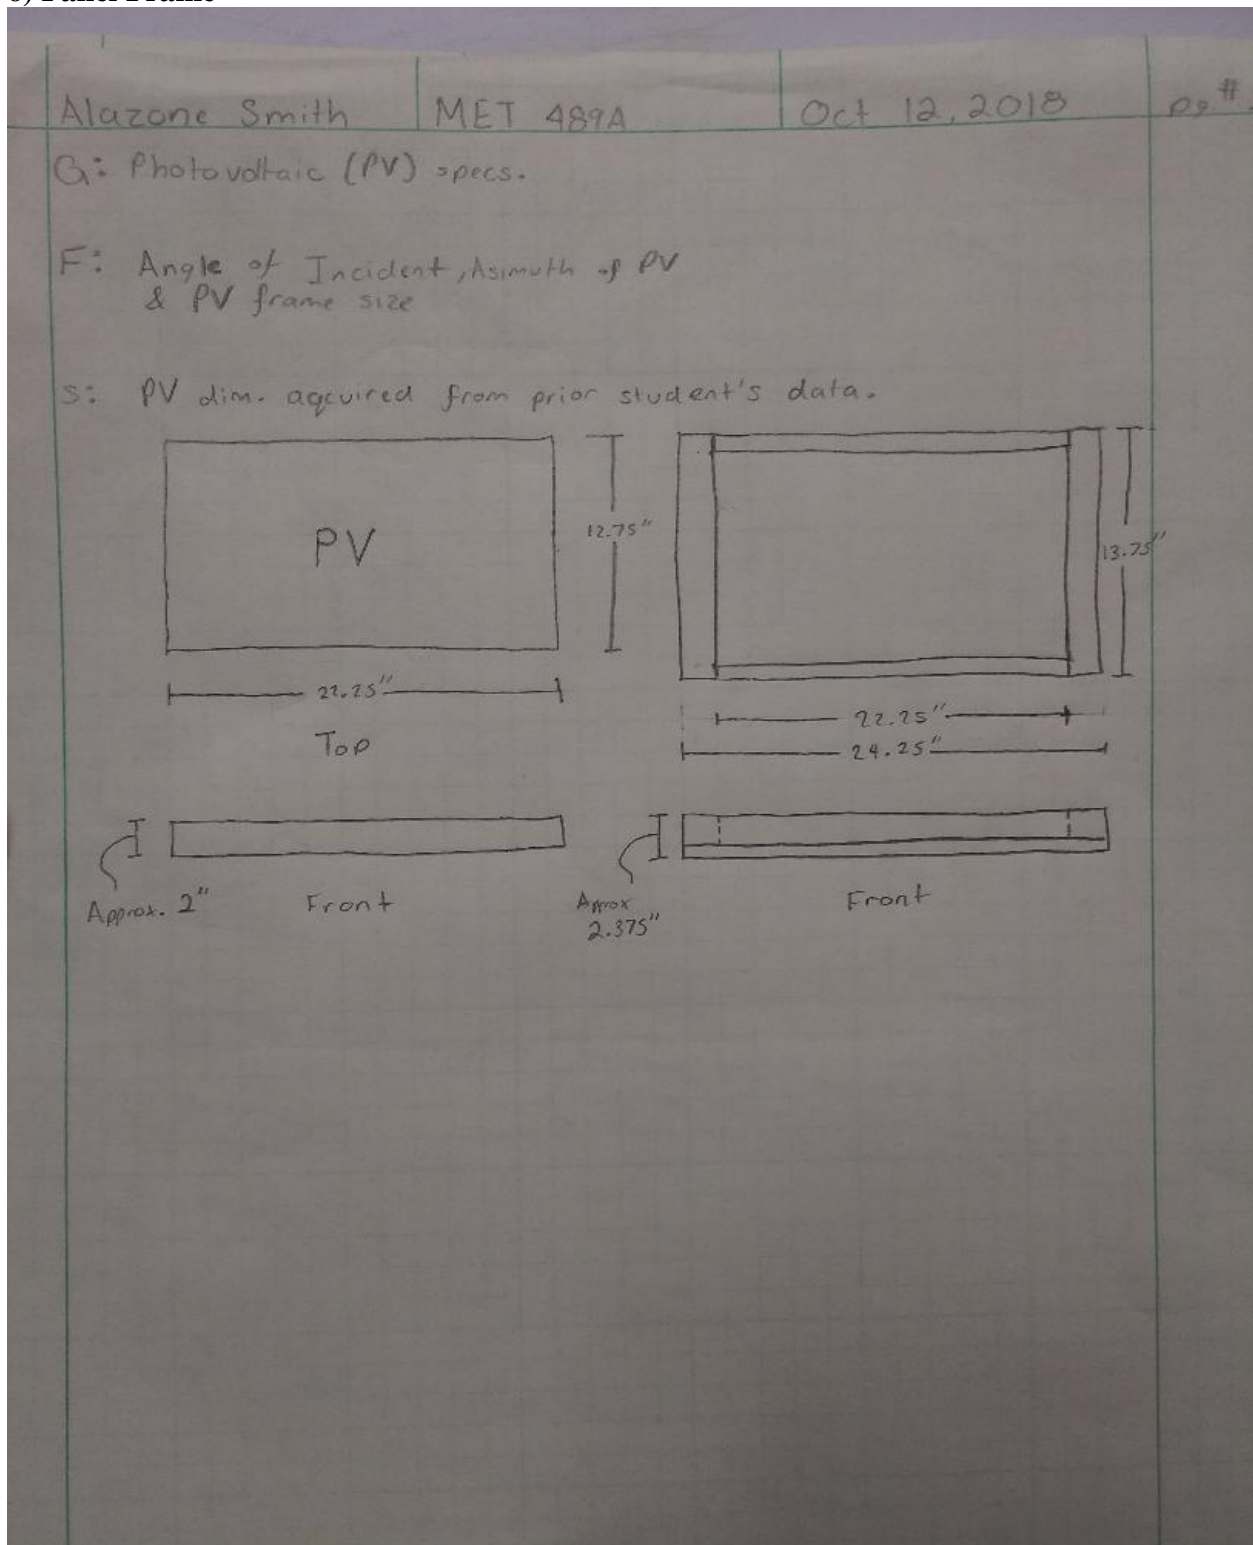 Alazone Smith MET 489A Oct 12, 2018 pg #
G: Photovoltaic (PV) specs.
F: Angle of Incident, Asimuth of PV
& PV frame size
S: PV dim. aqcuired from prior student's data.
PV
12.75"
13.75"
22.25"
Top
22.25"
24.25"
Approx. 2"
Front
Aprox
2.375"
Front